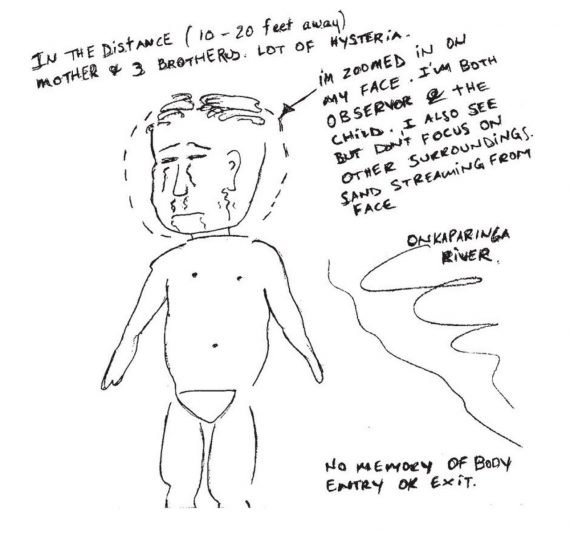 IN THE DISTANCE (10-20 feet away)
MOTHER & 3 BROTHERS. LOT OF HYSTERIA.
I'M ZOOMED IN ON
MY FACE. I'M BOTH
OBSERVOR & THE
CHILD. I ALSO SEE
BUT DON'T FOCUS ON
OTHER SURROUNDINGS.
SAND STREAMING FROM
FACE
ONKAPARINGA
RIVER.
NO MEMORY OF BODY
ENTRY OR EXIT.